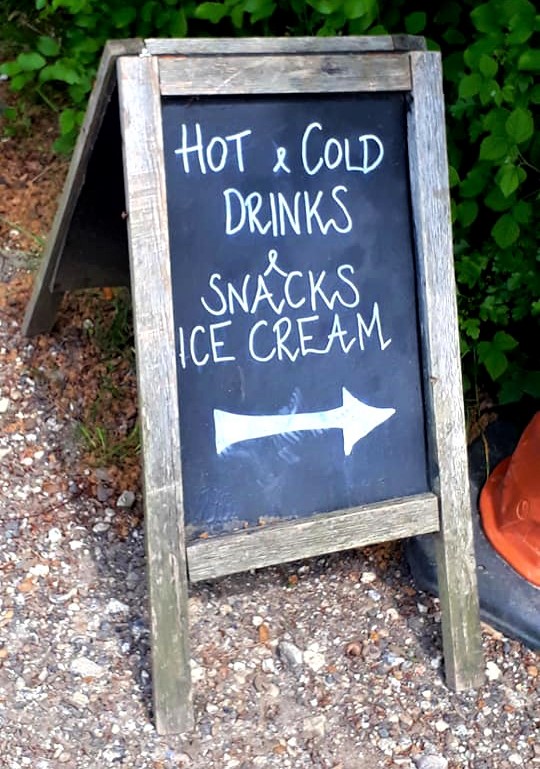 HOT & COLD
DRINKS
&
SNACKS
ICE CREAM